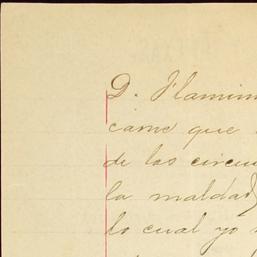 D. Flamin
carne que
de las circun
la maldad
lo cual yo